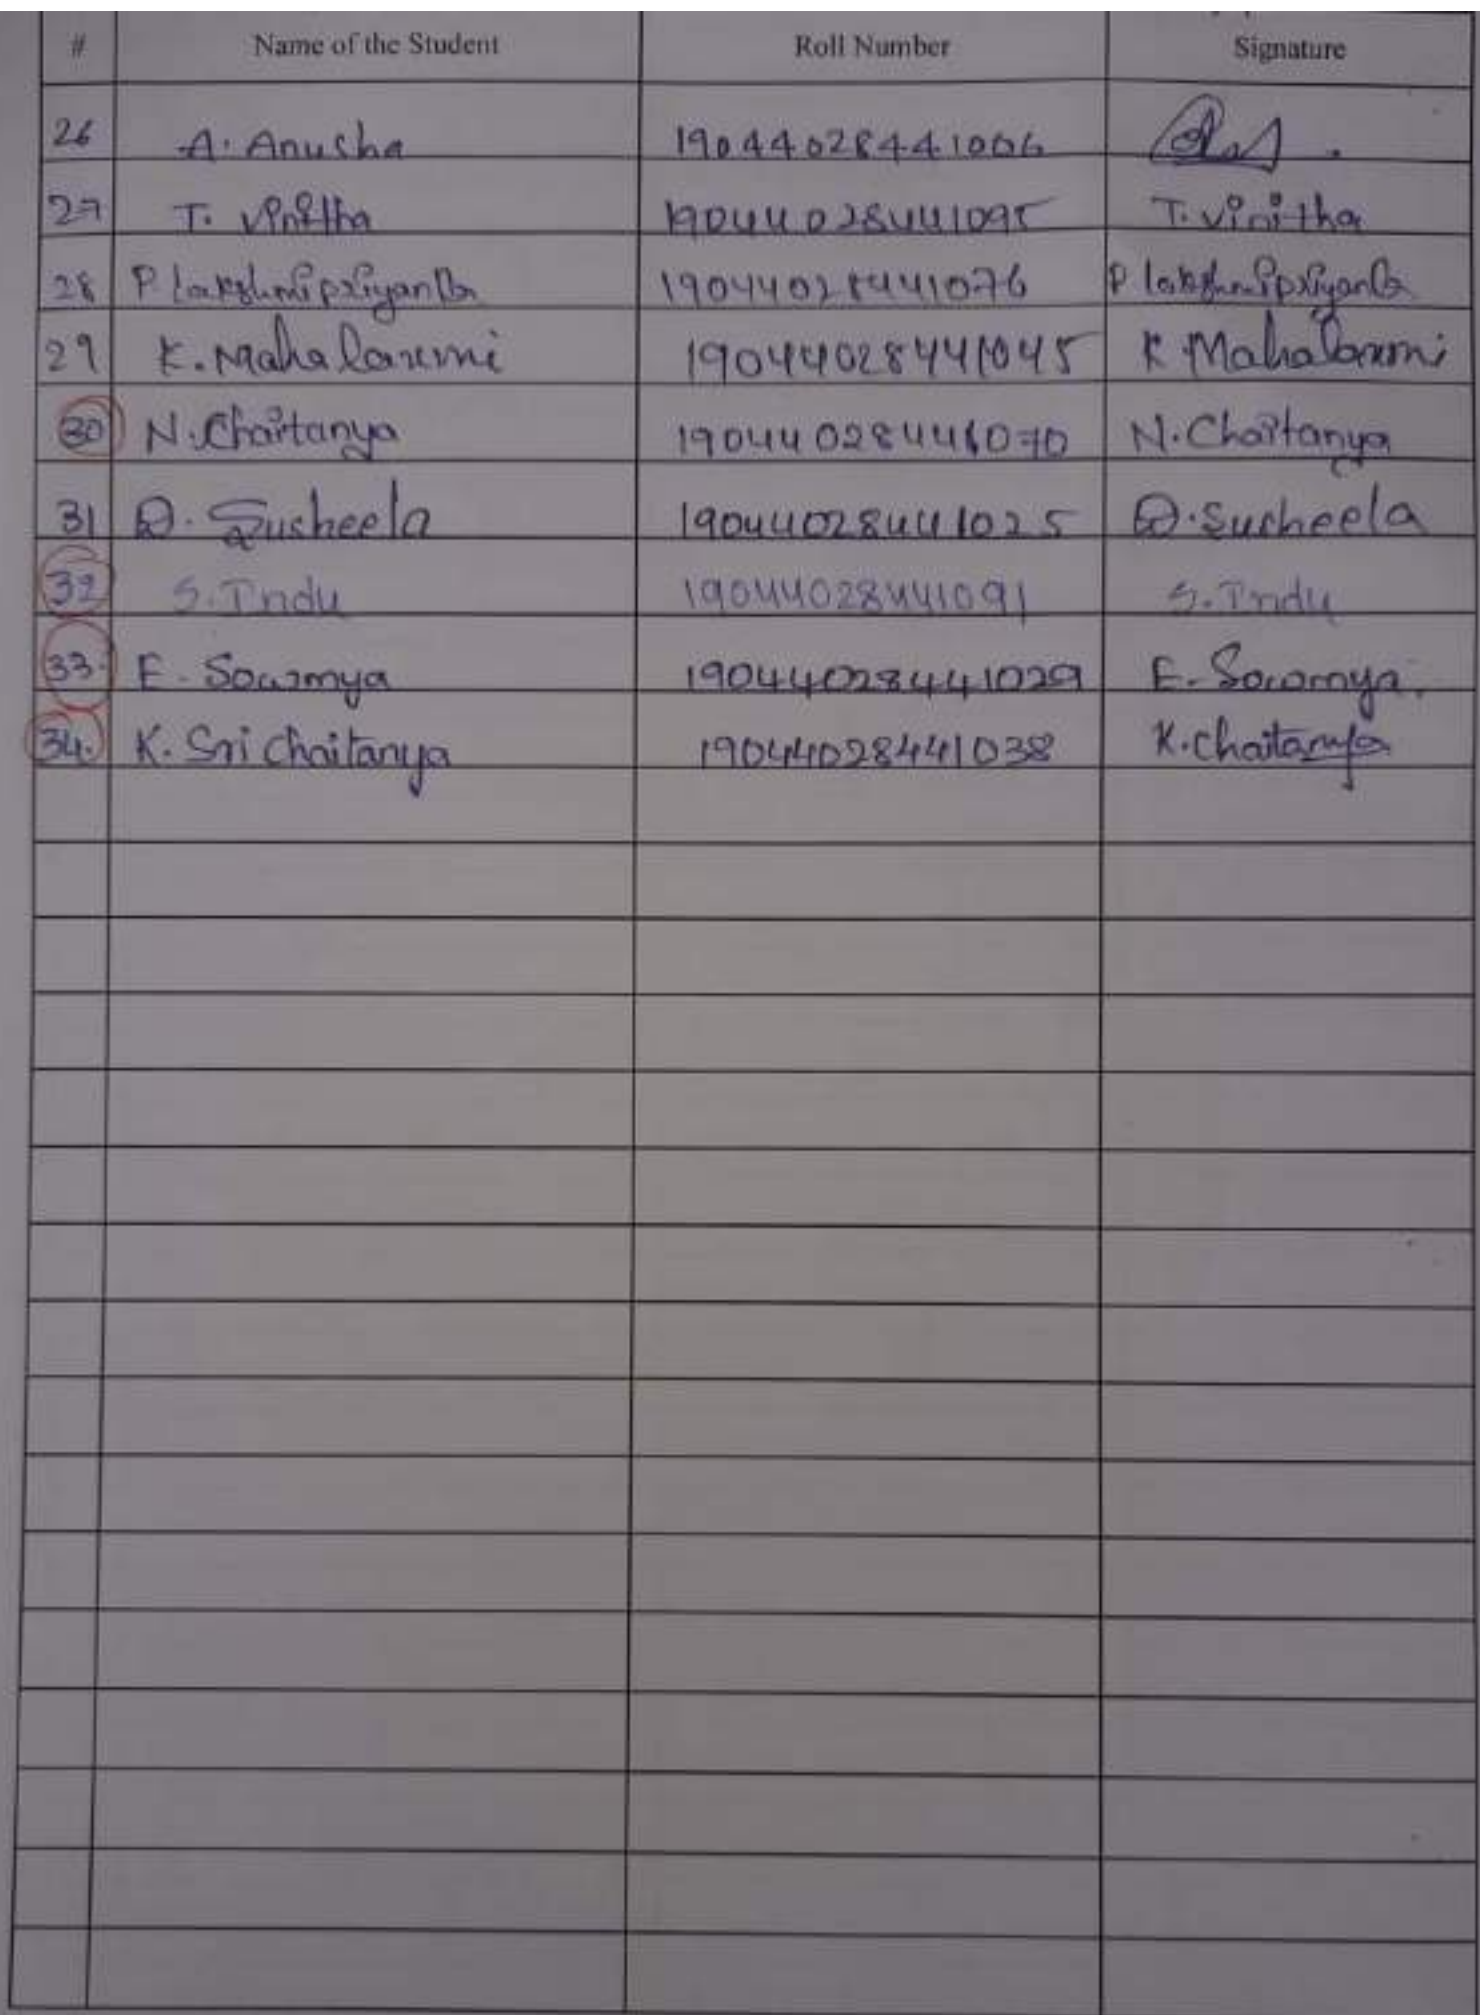 # Name of the Student Roll Number Signature
26 A. Anusha 19044028441006
27 T. Vinitha 19044028441095 T. Vinitha
28 P lakshmipriyanka 19044028441076 P lakshmipriyanka
29 K. Mahalaxmi 19044028441045 K Mahalaxmi
30 N. Chaitanya 19044028441070 N. Chaitanya
31 D. Susheela 19044028441025 D. Susheela
32 S. Indu 19044028441091 S. Indu
33. E. Sowmya 19044028441029 E. Sowmya.
34. K. Sri Chaitanya 19044028441038 K. Chaitanya